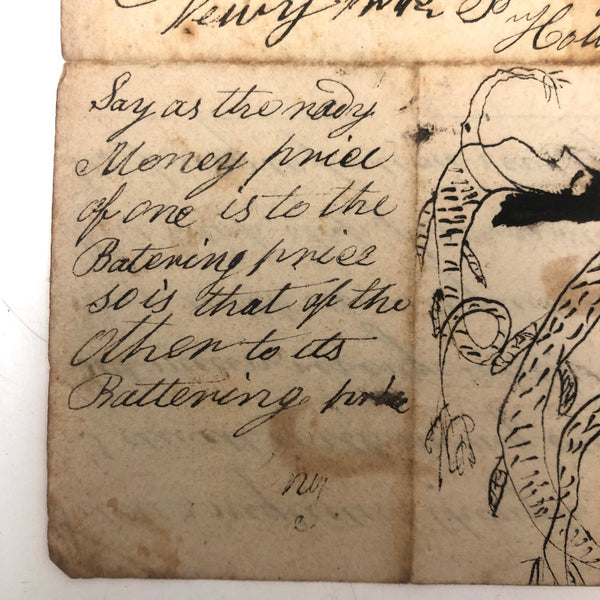 Say as the rady
Money price
of one is to the
Batering price
so is that of the
other to its
Battering price
ny